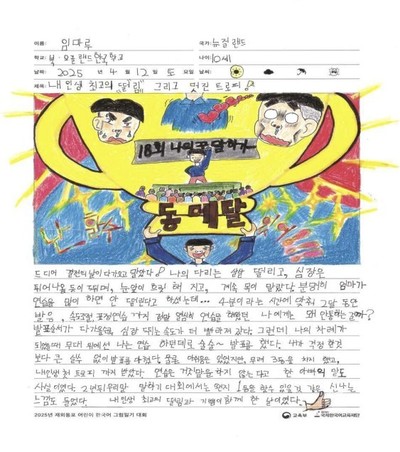 이름: 임마루 국가: 뉴질랜드
학교: 북·오클랜드한국학교 나이: 10세
날짜: 2025 년 4 월 12 일 토 요일 날씨:
제목: 내 인생 최고의 떨림 그리고 멋진 트로피
18회 나의 꿈 말하기
동메달
드디어 결전의 날이 다가오고 말았다. 나의 다리는 떨리고, 심장은
튀어나올 듯이 눈앞이 흐려 해 지고, 계속 목이 말랐다. 분명히 엄마가
연습을 많이 하면 안 떨린다고 하셨는데... 4분이라는 시간에 맞춰 그 동안
발음, 속도조절, 표정연습 까지 정말 열심히 연습을 하였던 나에게는 왜 안통하는 걸까?
발표순서가 다가올수록, 심장 뛰는 속도가 더 빨라져 갔다. 그런데! 나의 차례가
되었을때 무대 위에선 나는 연습 하던대로 술술~ 발표를 했다. 내가 걱정 한것
보다 큰 실수 없이 발표를 마쳤다. 물론, 아쉬움은 있었지만, 무려 3등을 차지 했고,
내 인생 첫 트로피 까지 받았다. 연습은 거짓말을 하지 않는다고 한 아빠의 말도
사실이었다. 2년뒤 우리말 말하기 대회에서는 왠지 1등을 할수 있을것 같은 신나는
느낌도 들었다. 내 인생 최고의 떨림과 기쁨이 함께 한 날이었다.
2025년 재외동포 어린이 한국어 그림일기 대회 교육부 국제한국어교육재단